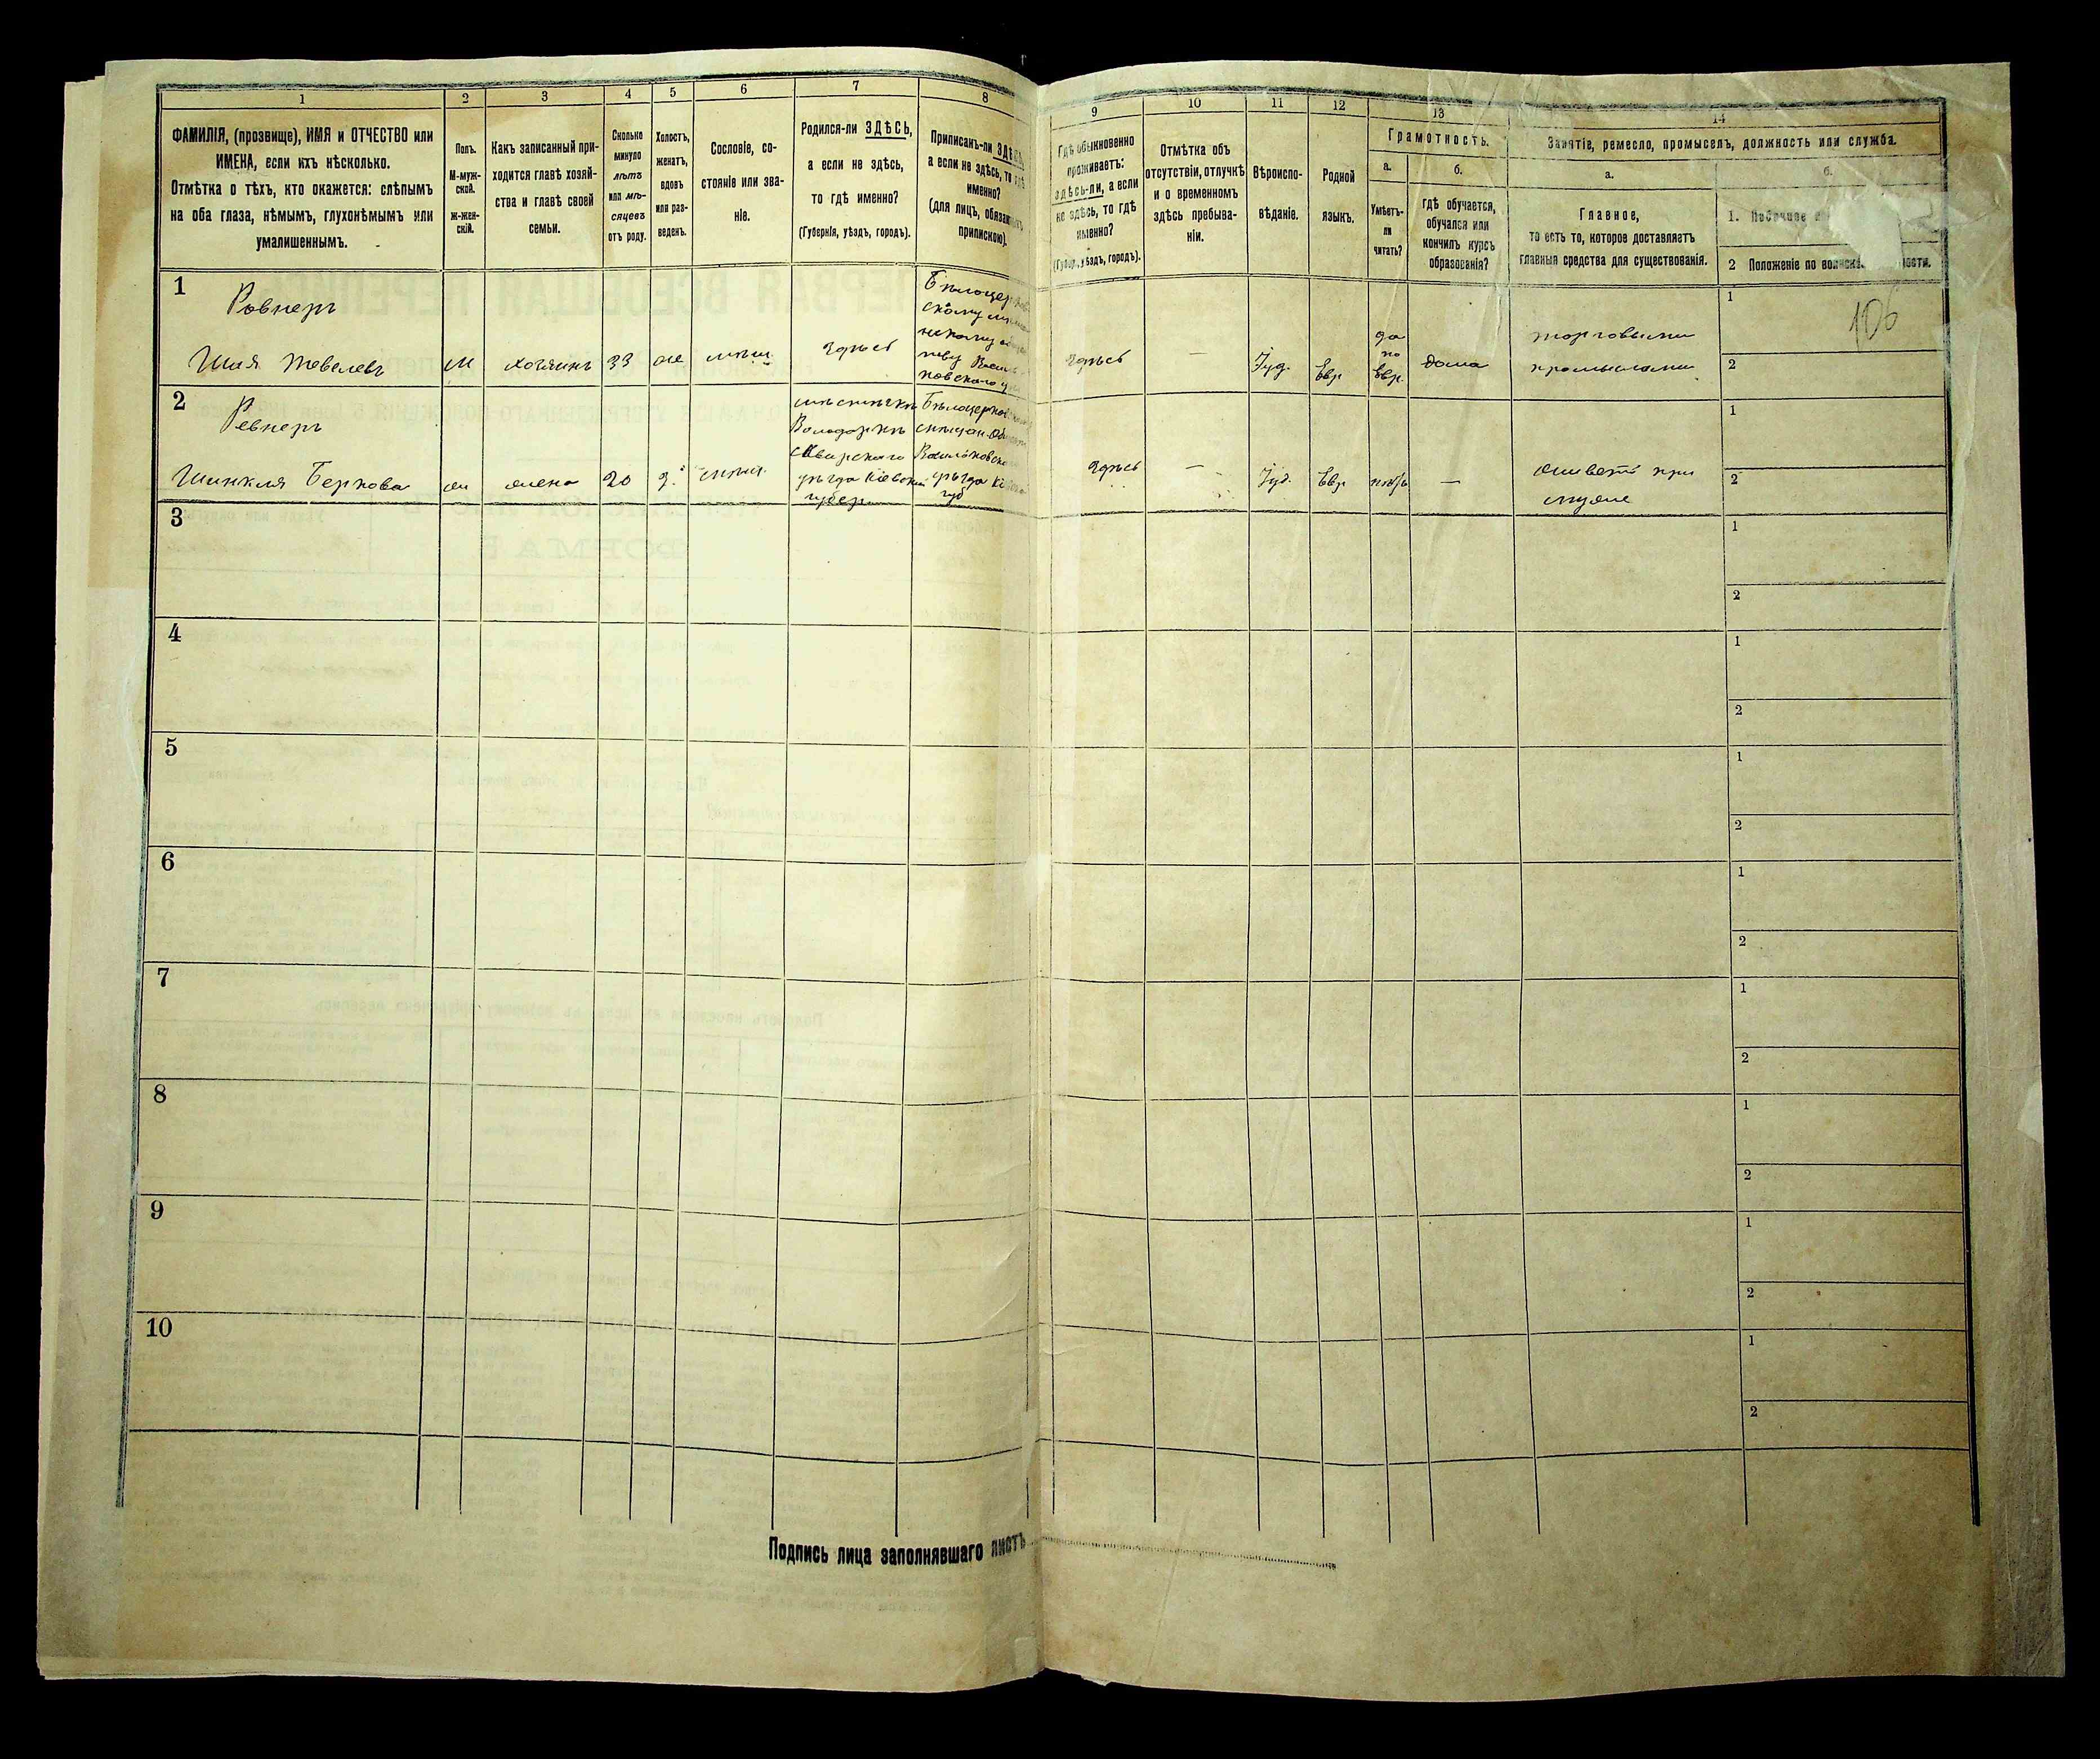 1 2 3 4 5 6 7 8
ФАМИЛІЯ, (прозвище), ИМЯ и ОТЧЕСТВО или
ИМЕНА, если ихъ нѣсколько.
Отмѣтка о тѣхъ, кто окажется: слѣпымъ
на оба глаза, нѣмымъ, глухонѣмымъ или
умалишеннымъ.
Полъ.
М-муж-
ской.
ж-жен-
скій.
Какъ записанный при-
ходится главѣ хозяй-
ства и главѣ своей
семьи.
Сколько
минуло
лѣтъ
или мѣ-
сяцевъ
отъ роду.
Холостъ,
женатъ,
вдовъ
или раз-
веденъ.
Сословіе, со-
стояніе или зва-
ніе.
Родился-ли ЗДѢСЬ,
а если не здѣсь,
то гдѣ именно?
(Губернія, уѣздъ, городъ).
Приписанъ-ли
а если не здѣсь, то гдѣ
именно?
(для лицъ,
припискою).
9 10 11 12 13 14
Гдѣ обыкновенно
проживаетъ:
здѣсь-ли, а если
не здѣсь, то гдѣ
именно?
(Губер., уѣздъ, городъ).
Отмѣтка объ
отсутствіи, отлучкѣ
и о временномъ
здѣсь пребыва-
ніи.
Вѣроиспо-
вѣданіе.
Родной
языкъ.
Грамотность.
а.
Умѣетъ-
ли
читать?
б.
Гдѣ обучается,
обучался или
кончилъ курсъ
образованія?
Занятіе, ремесло, промыселъ, должность или служба.
а.
Главное,
то есть то, которое доставляетъ
главныя средства для существованія.
б.
1. Побочное
2 Положеніе по
106
1
Ровнеръ
Шия Тевелевъ
М
хозяинъ
33
же
мѣщ.
Здѣсь
Здѣсь
—
Іуд.
Евр
да
по
Евр.
дома
торговыми
промыслами
1
2
2
Ревнеръ
Шинкля Беркова
ж
жена
20
з.
мѣщ.
мѣстечкѣ
Володаркѣ
Сквирскаго
уѣзда Кіевской
губер.
Здѣсь
—
Іуд.
Евр
—
живетъ при
мужѣ
1
2
3
1
2
4
1
2
5
1
2
6
1
2
7
1
2
8
1
2
9
1
2
10
1
2
Подпись лица заполнявшаго листъ